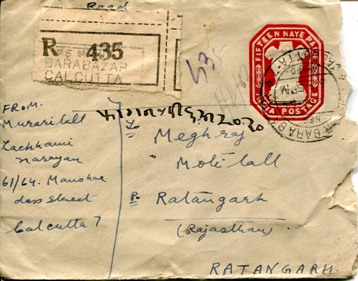 Read
R 435
BARABAZAR
CALCUTTA
53
FIFTEEN NAYE PAISE
INDIA POSTAGE
FROM.
Murarilall
Lachhmi
narayan
61/64. Manohar
dass street
Calcutta 7
To
Meghraj
Motilall
P.
Ratangarh
(Rajasthan)
RATANGARH.